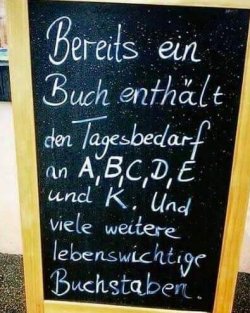 Bereits ein
Buch enthält
den Tagesbedarf
an A,B,C,D,E
und K. Und
viele weitere
lebenswichtige
Buchstaben.